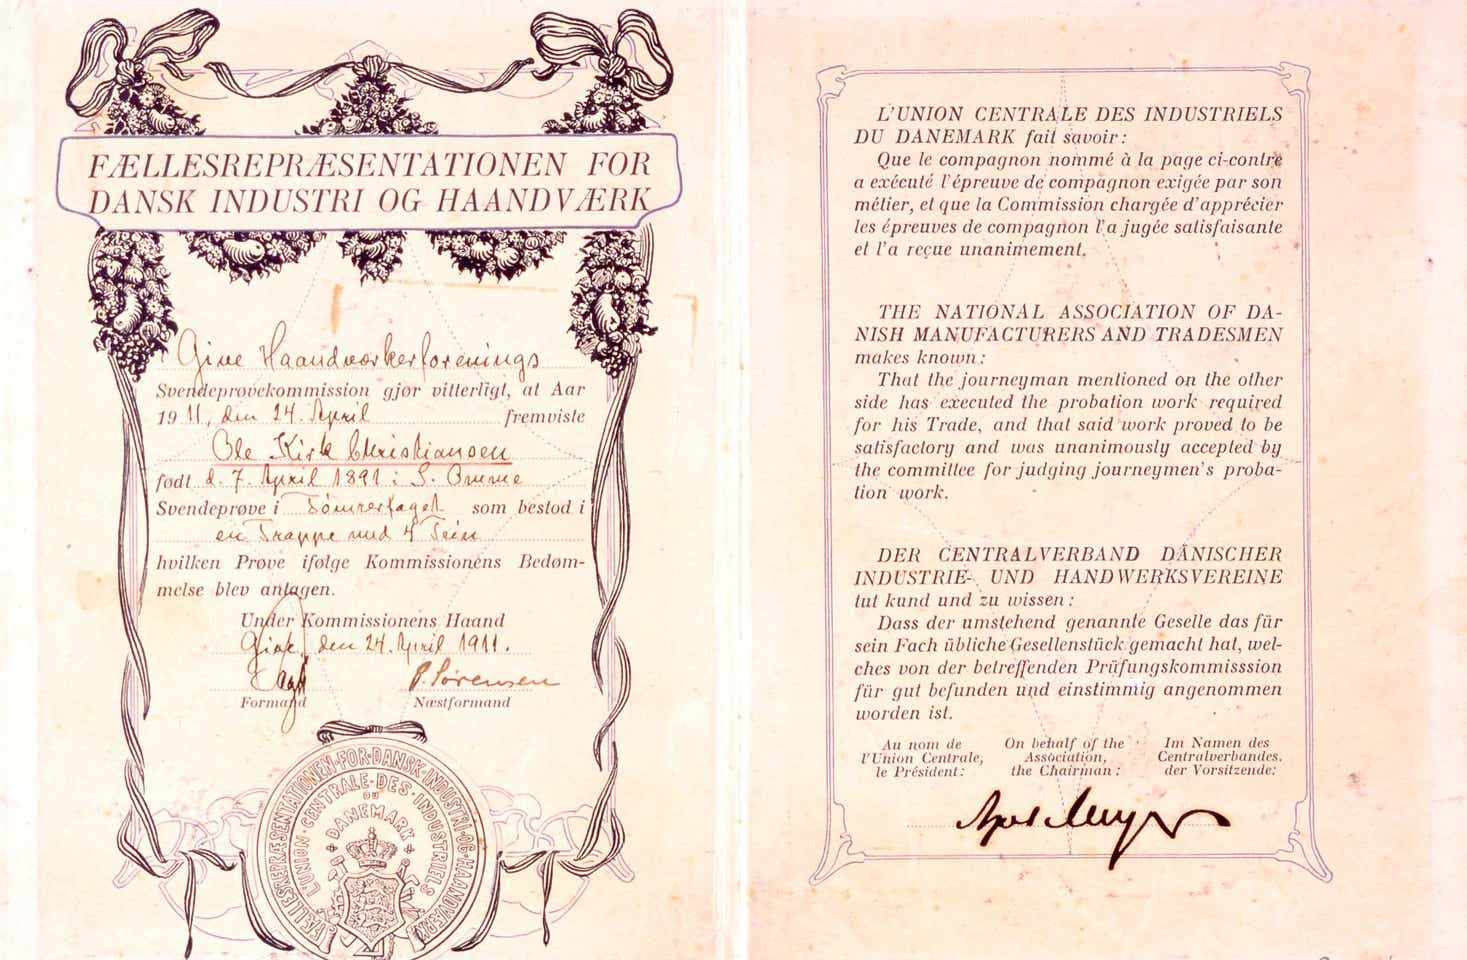 FÆLLESREPRÆSENTATIONEN FOR
DANSK INDUSTRI OG HAANDVÆRK
Give Haandværkerforenings
Svendeprøvekommission gjør vitterligt, at Aar
1911, den 24. April fremviste
Ole Kirk Christiansen
født d. 7. April 1891 i S. Omme
Svendeprøve i Tømrerfaget som bestod i
en Trappe med 4 Trin
hvilken Prøve ifølge Kommissionens Bedøm-
melse blev antagen.
Under Kommissionens Haand
Give, den 24. April 1911.
P. Sørensen
Formand Næstformand
FÆLLESREPRÆSENTATIONEN·FOR·DANSK·INDUSTRI·OG·HAANDVÆRK
L'UNION·CENTRALE·DES·INDUSTRIELS
DU
DANEMARK
L'UNION CENTRALE DES INDUSTRIELS
DU DANEMARK fait savoir:
Que le compagnon nommé à la page ci-contre
a exécuté l'épreuve de compagnon exigée par son
métier, et que la Commission chargée d'apprécier
les épreuves de compagnon l'a jugée satisfaisante
et l'a reçue unanimement.
THE NATIONAL ASSOCIATION OF DA-
NISH MANUFACTURERS AND TRADESMEN
makes known:
That the journeyman mentioned on the other
side has executed the probation work required
for his Trade, and that said work proved to be
satisfactory and was unanimously accepted by
the committee for judging journeymen's proba-
tion work.
DER CENTRALVERBAND DÄNISCHER
INDUSTRIE- UND HANDWERKSVEREINE
tut kund und zu wissen:
Dass der umstehend genannte Geselle das für
sein Fach übliche Gesellenstück gemacht hat, wel-
ches von der betreffenden Prüfungskommisssion
für gut befunden und einstimmig angenommen
worden ist.
Au nom de On behalf of the Im Namen des
l'Union Centrale, Association, Centralverbandes.
le Président: the Chairman: der Vorsitzende: